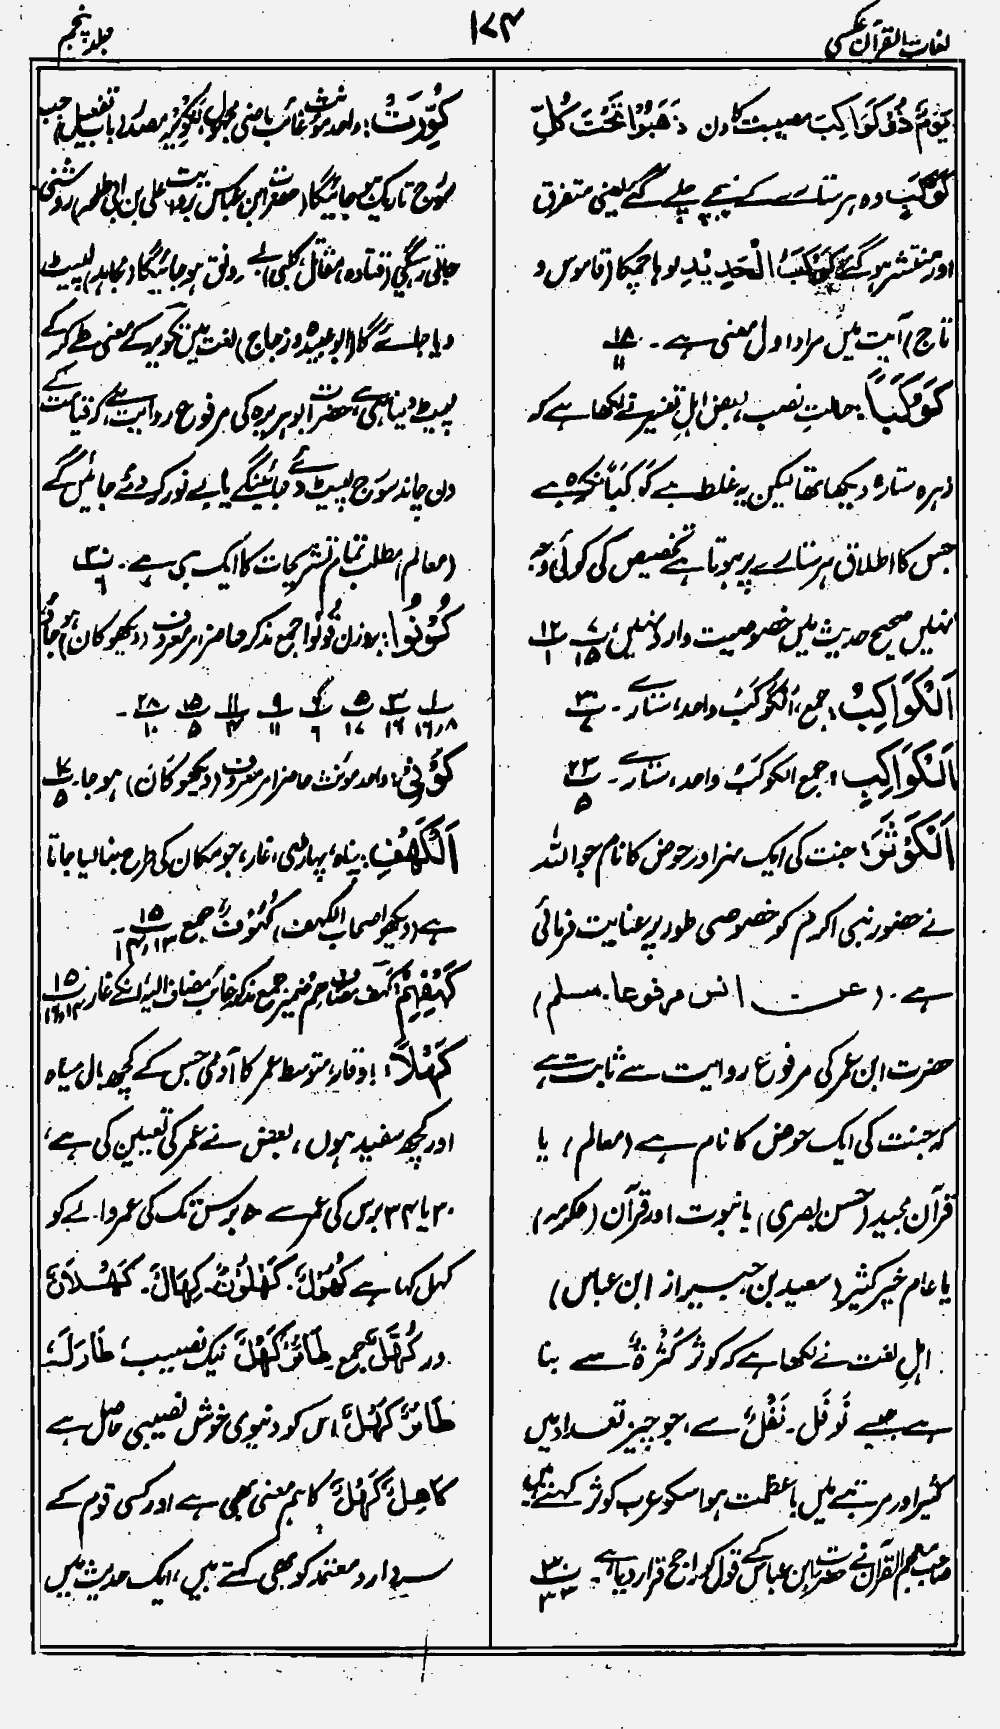 لغات القرآن عکسی
۱۷۴
جلد پنجم
یَوْمٌ ذُوْ کَوَاکِبَ مصیبت کا دن ذَھَبُوْا تَحْتَ کُلِّ
کَوْکَبٍ وہ ہر ستارے کے نیچے چلے گئے یعنی متفرق
اور منتشر ہو گئے کَوْکَبُ الْحَدِیْدِ لوہا چمکا (قاموس و
تاج) آیت میں مراد اول معنی ہے۔ ۱۸/۱۱
کَوْکَبًا: حالتِ نصب، بعض اہلِ تفسیر نے لکھا ہے کہ
زہرہ ستارہ دیکھا تھا لیکن یہ غلط ہے کَوْکَبًا نکرہ ہے
جس کا اطلاق ہر ستارے پر ہوتا ہے تخصیص کی کوئی وجہ
نہیں صحیح حدیث میں خصوصیت وارد نہیں، ۷/۱۵ ۱۲/۱
اَلْکَوَاکِبُ: جمع، اَلْکَوْکَبُ واحد، ستارے۔ ۳۰/۷
اَلْکَوَاکِبِ: جمع الکوکبُ واحد، ستارے۔ ۲۳/۵
اَلْکَوْثَرَ: جنت کی ایک نہر اور حوض کا نام جو اللہ
نے حضور نبی اکرم کو خصوصی طور پر عنایت فرمائی
ہے۔ (عن انس مرفوعا۔ مسلم)
حضرت ابن عمر کی مرفوع روایت سے ثابت ہے
کہ جنت کی ایک حوض کا نام ہے (معالم) یا
قرآن مجید (حسن بصری) یا نبوت اور قرآن (عکرمہ)
یا عام خیر کثیر (سعید بن جبیر از ابن عباس)
اہلِ لغت نے لکھا ہے کہ کوثر کَثْرَۃٌ سے بنا
ہے جیسے نَوْفَل۔ نَفْلٌ سے، جو چیز تعداد میں
کثیر اور مرتبے میں باعظمت ہو اسکو عرب کوثر کہتے ہیں
صاحب معجم القرآن نے حضرت ابن عباس کے قول کو راجح قرار دیا ہے۔ ۳۰/۳۳
کُوِّرَتْ: واحد مؤنث غائب ماضی مجہول، تَکْوِیْرٌ مصدر، باب تفعیل، جب
سورج تاریک ہو جائیگا (حضرت ابن عباس بروایت علی بن ابی طلحہ) روشنی
جاتی رہیگی (قتادہ، مقاتل، کلبی) بے رونق ہو جائیگا (مجاہد) لپیٹ
دیا جائے گا (ابو عبیدہ و زجاج) لغت میں تکویر کے معنی طے کر کے
لپیٹ دینا ہی ہے، حضرت ابو ہریرہ کی مرفوع روایت ہے، کہ قیامت کے
دن چاند سورج لپیٹ دئے جائینگے یا بے نور کر دئے جائیں گے
(معالم) مطلب تمام تشریحات کا ایک ہی ہے۔ ۳۰/۶
کُوْنُوْا: بروزن قُوْلُوا جمع مذکر حاضر امر معروف (دیکھو کان) ہو جاؤ
۱/۸و۱۶ ۳/۱۶ ۵/۱۷ ۶/۶ ۹/۱۱ ۱۱/۴ ۱۵/۵ ۲۸/۱۰ ۔
کُوْنِیْ: واحد مؤنث حاضر امر معروف (دیکھو کَانَ) ہو جا۔ ۱۷/۵
اَلْکَھْفِ: پناہ، پہاڑی، غار، جو مکان کی طرح بنا لیا جاتا
ہے (دیکھو اصحاب الکھف) کُھُوْفٌ جمع ۱۵/۱۳و۱۴ ۔
کَھْفِھِمْ: کہف مضاف ھم ضمیر جمع مذکر غائب مضاف الیہ، انکے غار ۱۵/۱۴و۱۶
کَھْلًا: باوقار، متوسط عمر کا آدمی جس کے کچھ بال سیاہ
اور کچھ سفید ہوں، بعض نے عمر کی تعیین کی ہے،
۳۰ یا ۳۴ برس کی عمر سے ۵۰ برس تک کی عمر والے کو
کہل کہا ہے کُھُوْلٌ۔ کَھْلُوْنَ۔ کِھَالٌ۔ کَھْلَانٌ
ور کُھَّلٌ جمع۔ طَائِرٌ کَھْلٌ نیک نصیب، طَارَلَہٗ
طَائِرٌ کَھْلٌ اس کو دنیوی خوش نصیبی حاصل ہے
کَاھِلٌ کَھْلٌ کا ہم معنی بھی ہے اور کسی قوم کے
سردار و معتمد کو بھی کہتے ہیں، ایک حدیث میں